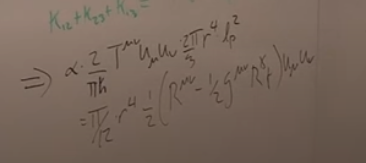 K₁₂ + K₂₃ + K₁₃ =
⇒ α · 2/πℏ T^{μν} u_μ u_ν · 2π/3 r⁴ l_p²
= π/12 · r⁴ 1/2 (R^{μν} - 1/2 g^{μν} R^γ_γ) u_μ u_ν